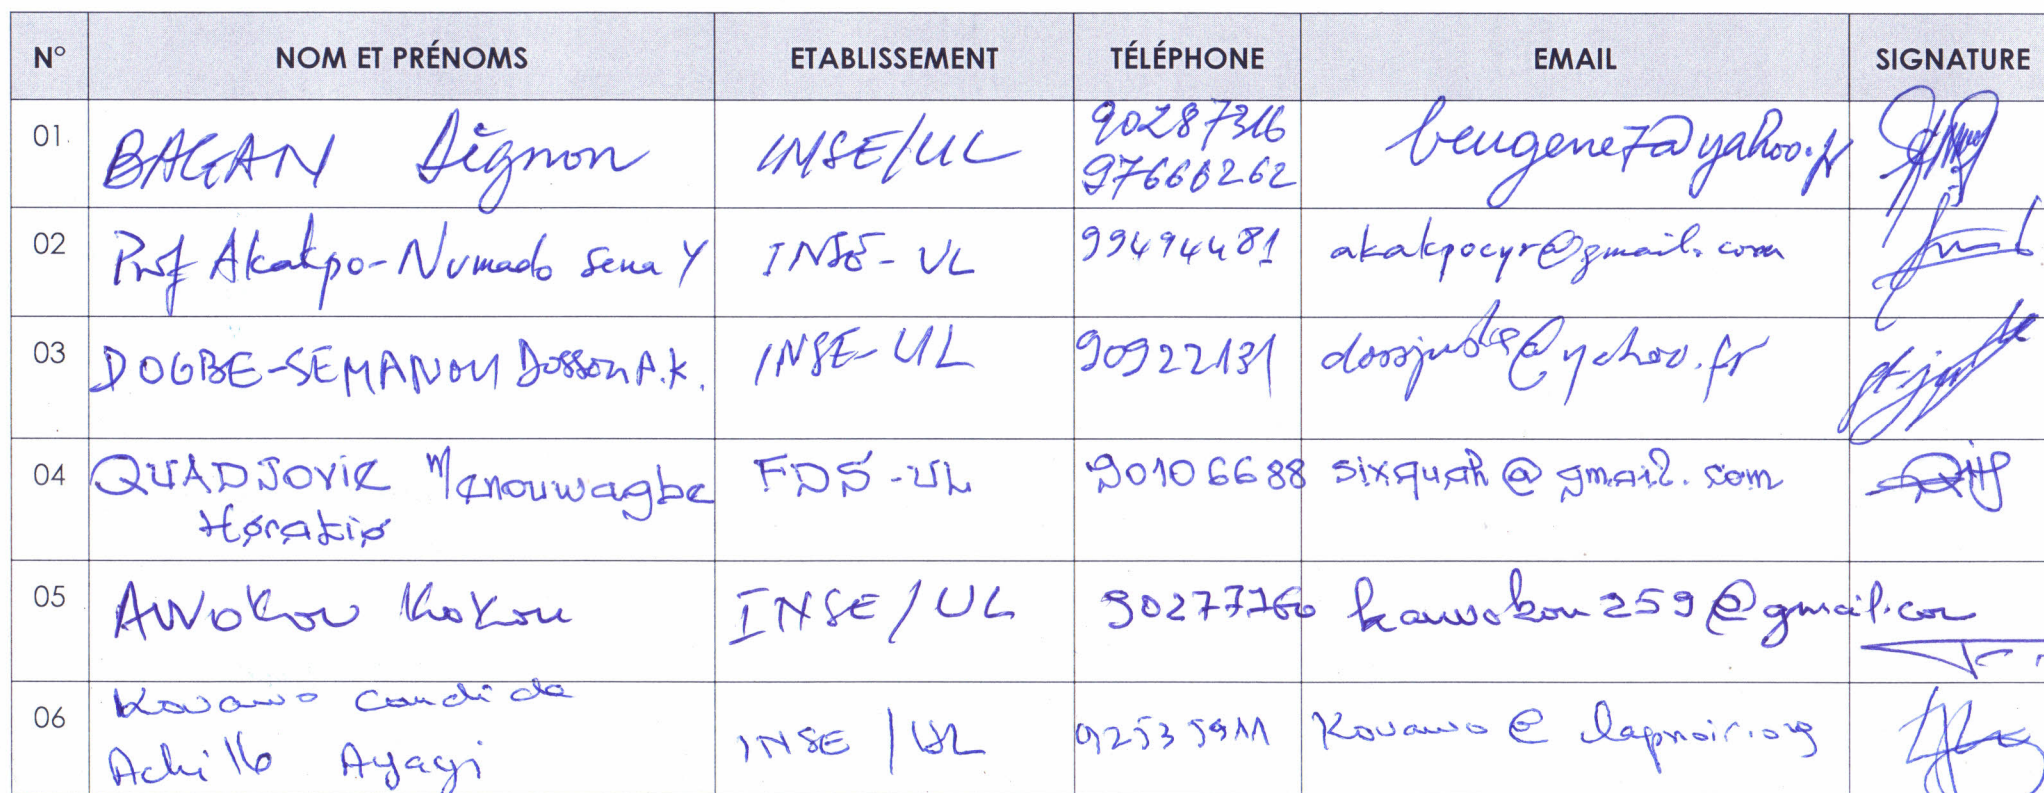 N° NOM ET PRÉNOMS ETABLISSEMENT TÉLÉPHONE EMAIL SIGNATURE
01 BAGAN Dègnon INSE/UL 90287316 beugene7@yahoo.fr
97666262
02 Prof Akakpo-Numado Sena Y INSE-UL 99494481 akakpocyr@gmail.com
03 DOGBE-SEMANOU Dossou A.K. INSE-UL 90922131 @yahoo.fr
04 QUADJOVIE Menouwagbe FDS-UL 90106688 sixquah@gmail.com
Horatio
05 AWOKOU Kokou INSE/UL 90277760 kawokou259@gmail.com
06 Kouawo Candide
Achille Ayayi INSE/UL 92535911 Kouawo@lapnoir.org